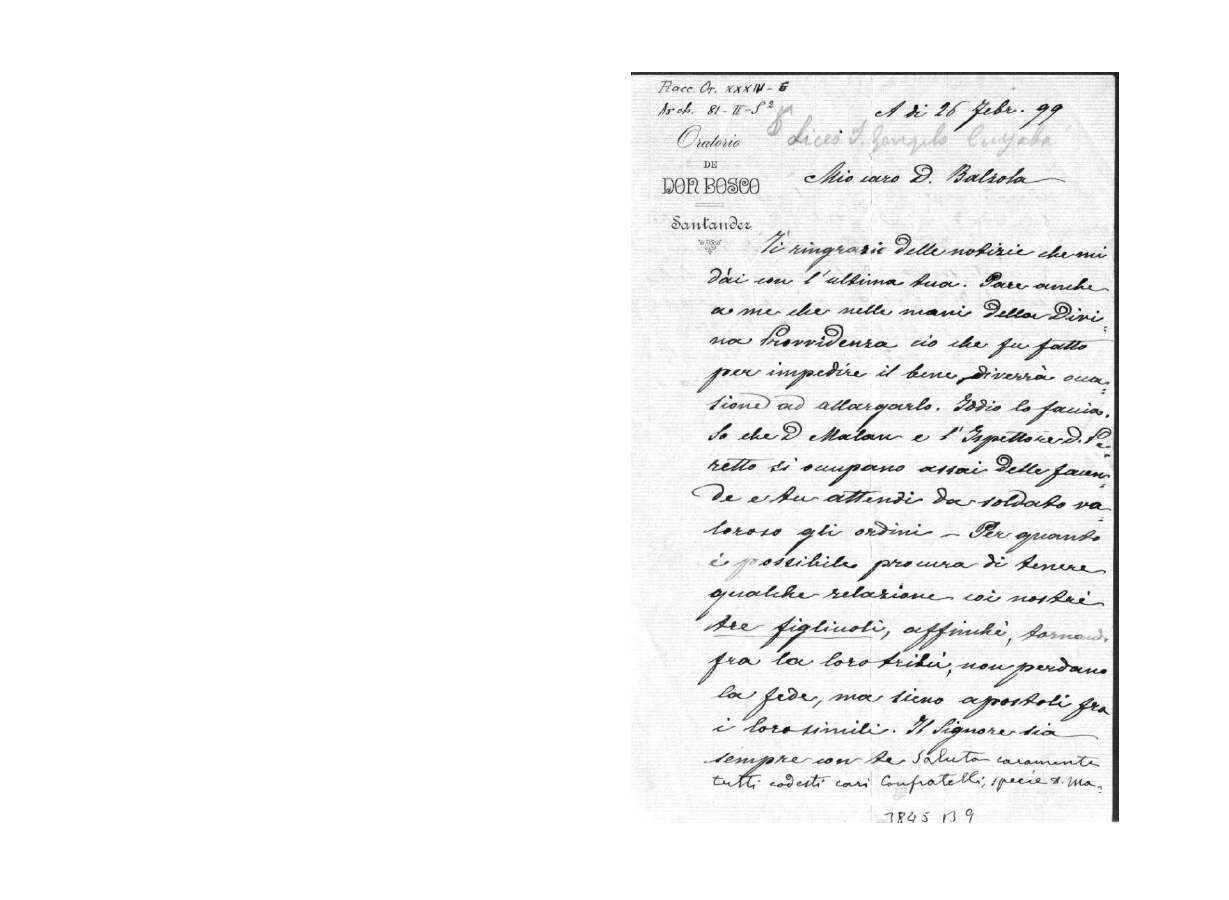 Racc. Or. XXXIV - 5
Arch. 81 - II - S 2
A di 26 Febr. 99
Oratorio
DE
DON BOSCO
Santander
Liceo S. Cuyabá
Mio caro D. Balzola
Ti ringrazio delle notizie che mi
dài con l'ultima tua. Pare anche
a me che nelle mani della Divi-
na Provvidenza ciò che fu fatto
per impedire il bene, diverrà occa-
sione ad allargarlo. Iddio lo faccia.
So che D Malan e l'Ispettore D. Pe-
retto si occupano assai delle facen-
de e tu attendi da soldato va-
loroso gli ordini – Per quanto
è possibile procura di tenere
qualche relazione coi nostri
tre figliuoli, affinchè, tornando
fra la loro tribù, non perdano
la fede, ma sieno apostoli fra
i loro simili. Il Signore sia
sempre con te Saluta caramente
tutti codesti cari Confratelli, specie D. Ma-
3845 B 9